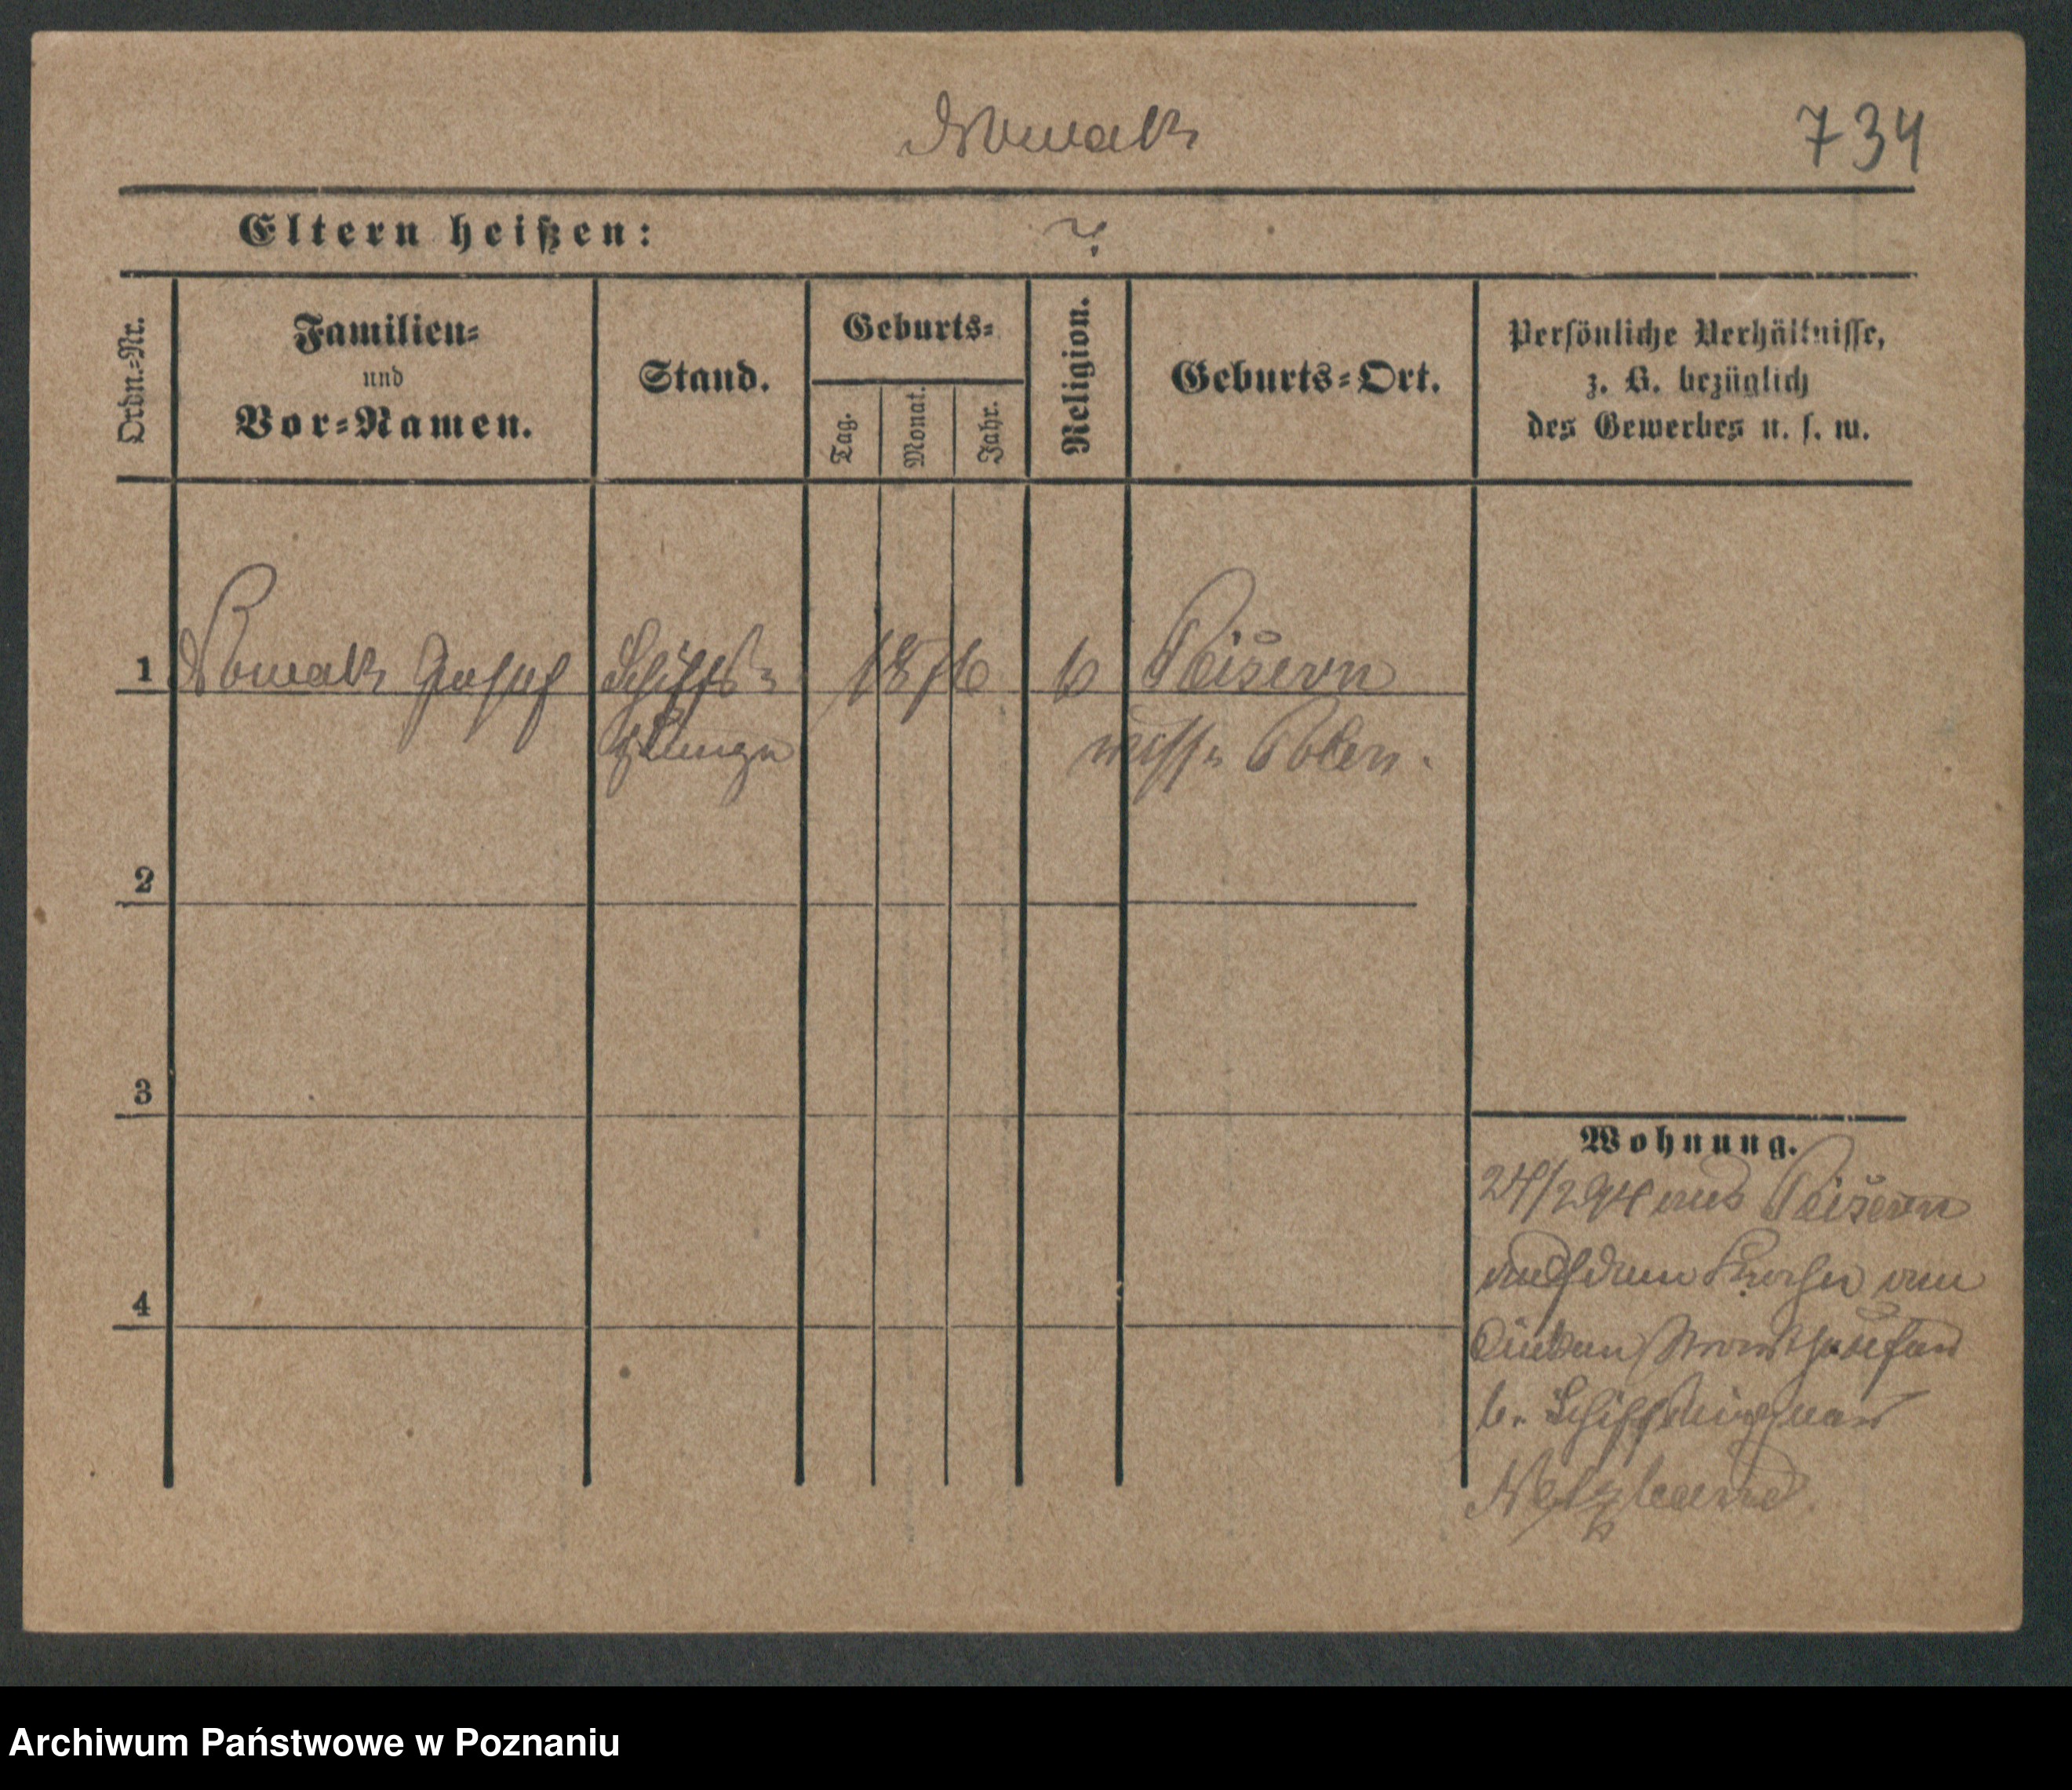 Nowak
734
Eltern heißen: ?
Ordn.=Nr.
Familien=
und
Vor=Namen.
Stand.
Geburts=
Tag.
Monat.
Jahr.
Religion.
Geburts=Ort.
Persönliche Verhältnisse,
z. B. bezüglich
des Gewerbes u. s. w.
1 Nowak Josef Schiffs= 1876 k Peisern
junge russ. Polen.
2
3
4
Wohnung.
24/2 94 aus Peisern
auf dem
b. Schiffseigner
Archiwum Państwowe w Poznaniu